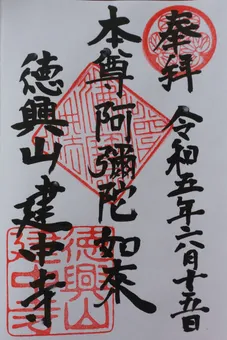 奉拝
令和五年六月十五日
本尊阿彌陀如來
徳興山建中寺
徳興山
建中寺